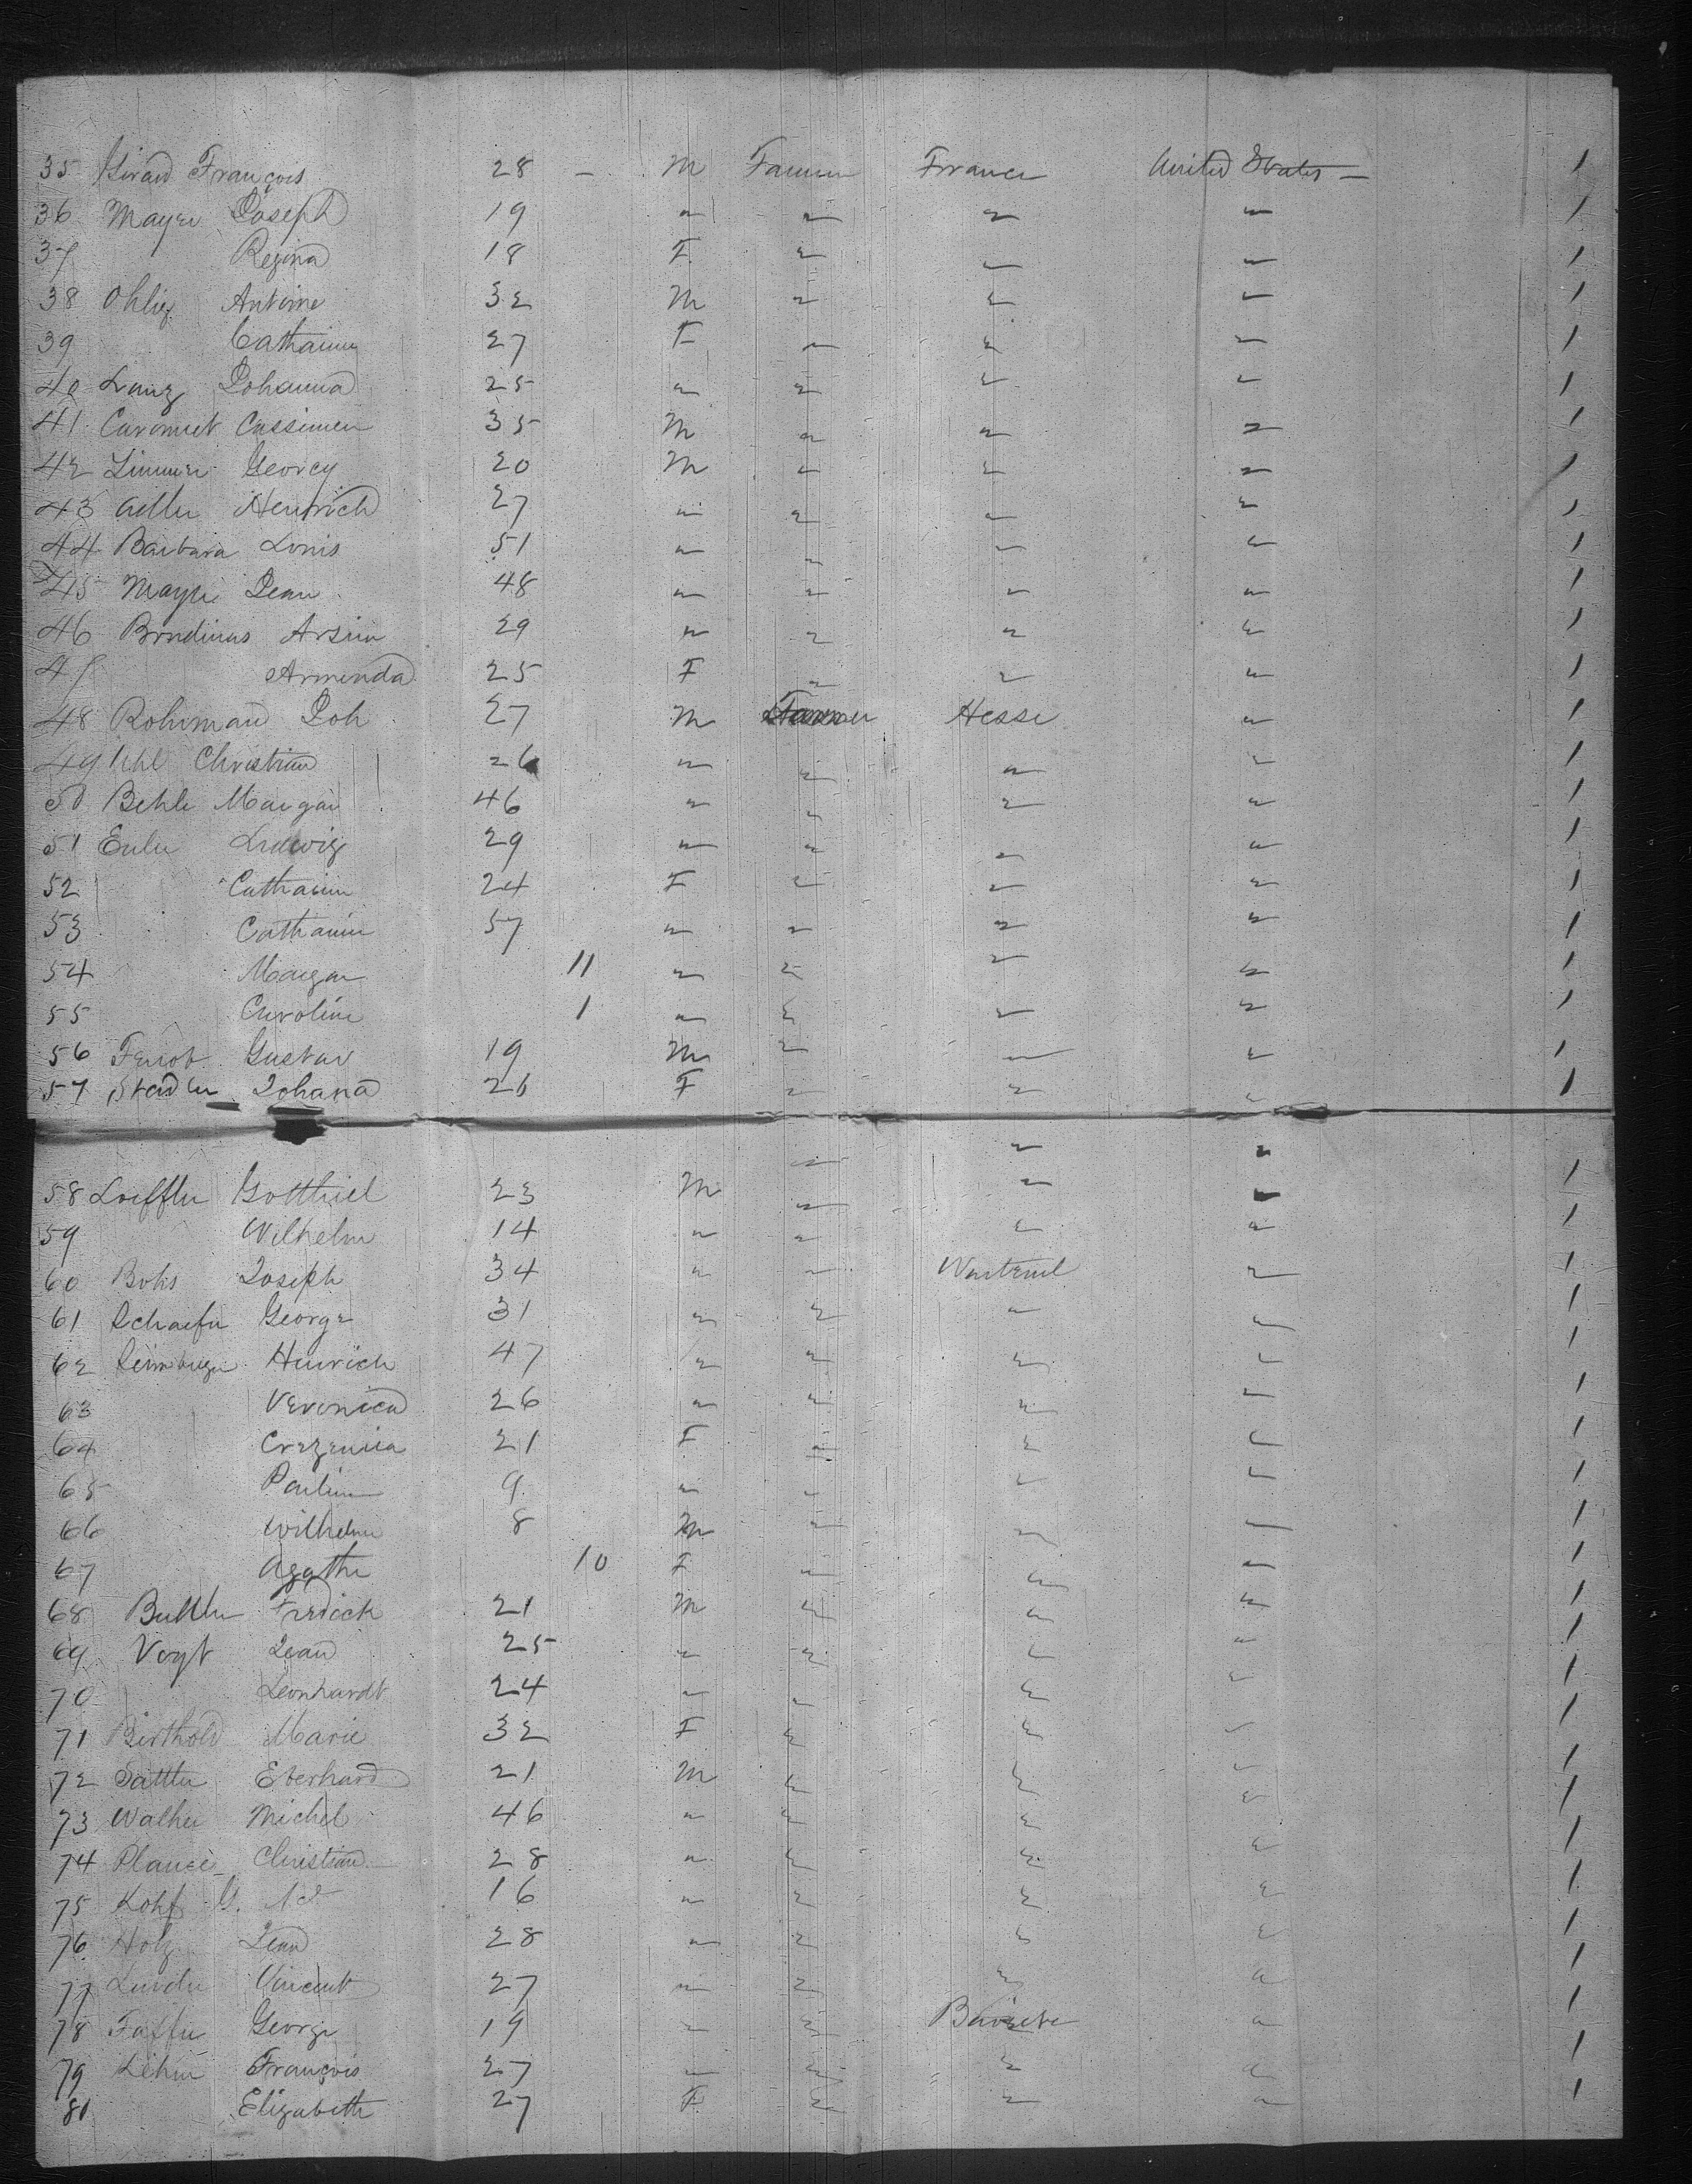 35 Girard François 28 — M Farmer France United States — 1
36 Mayer Joseph 19 " " " " 1
37 Regina 18 F " " " 1
38 Ohlig Antoine 32 M " " " 1
39 Catharine 27 F " " " 1
40 Lanz Johanna 25 " " " " 1
41 Cassimer 35 M " " " 1
42 Zimmer Georg 20 M " " " 1
43 Adler Heinrich 27 " " " " 1
44 Barbara Louis 51 " " " " 1
45 Mayer Jean 48 " " " " 1
46 29 " " " " 1
47 Armenda 25 F " " " 1
48 Rohrman Joh 27 M Farmer Hesse " 1
49 Uhl Christian 26 " " " " 1
50 Behle Margar 46 " " " " 1
51 Euler Ludwig 29 " " " " 1
52 Catharine 24 F " " " 1
53 Catharine 57 " " " " 1
54 Margar 11 " " " " 1
55 Caroline 1 " " " " 1
56 Gustav 19 M " " " 1
57 Stadler Johana 26 F " " " 1
" " "
58 Loeffler Gottliel 23 M " " " 1
59 Wilhelm 14 " " " " 1
60 Joseph 34 " " " 1
61 Schaefer George 31 " " " " 1
62 Heinrich 47 " " " " 1
63 Veronica 26 " " " " 1
64 Crezenzia 21 F " " " 1
65 Paulin 9 " " " " 1
66 Wilhelm 8 M " " " 1
67 Agathe 10 F " " " 1
68 Fredick 21 M " " " 1
69 Vogt Jean 25 " " " " 1
70 Leonhardt 24 " " " " 1
71 Birthold Marie 32 F " " " 1
72 Sattler Eberhard 21 M " " " 1
73 Walher Michel 46 " " " " 1
74 Christian 28 " " " " 1
75 Kohf G. 16 " " " " 1
76 Holz Jean 28 " " " " 1
77 Vincent 27 " " " " 1
78 George 19 " " " 1
79 François 27 " " " " 1
81 Elizabeth 27 F " " " 1